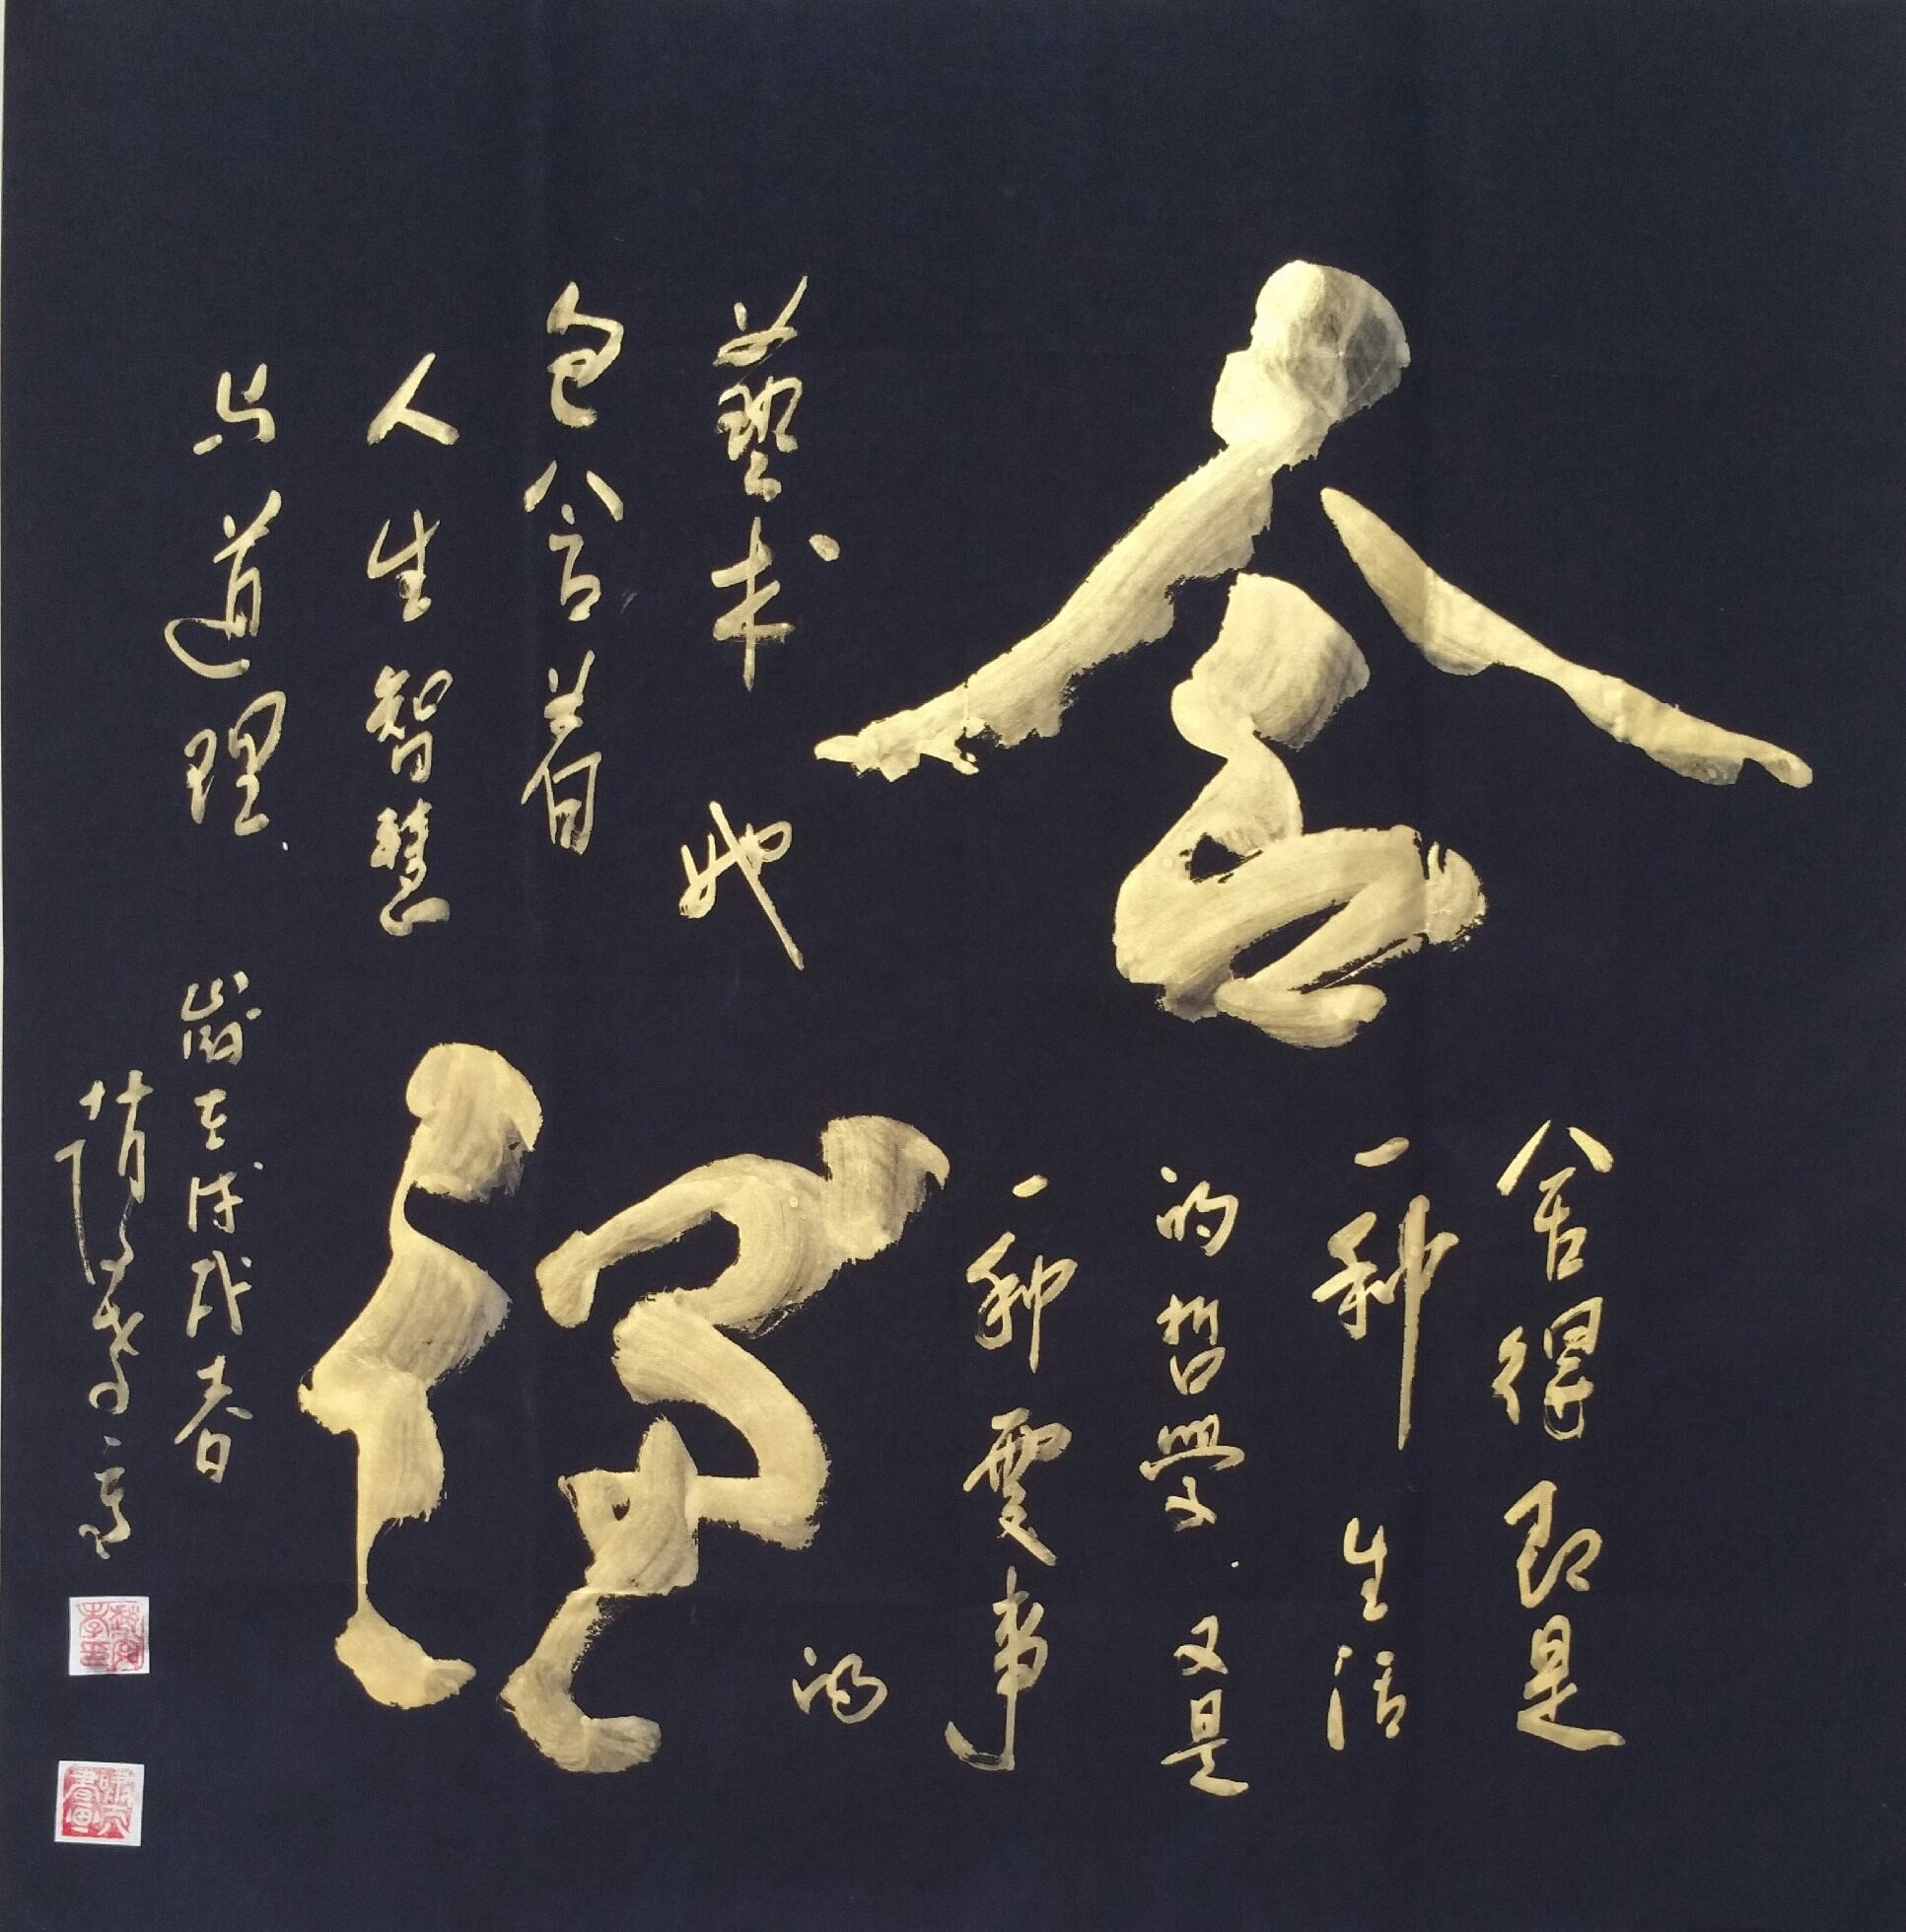 舍得
舍得即是
一种生活
的哲学.又是
一种处事
的
艺术她
包含着
人生智慧
与道理.
岁在戊戌春